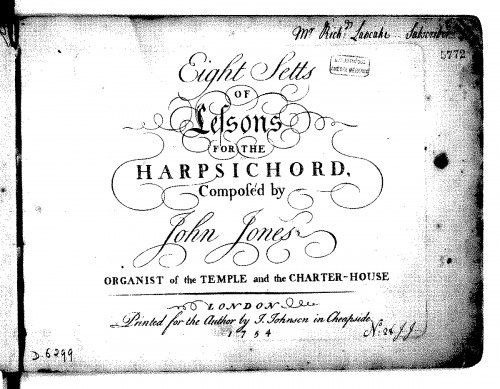 Mr Richd. Subscriber
5772
Eight Setts
OF
Leſsons
FOR THE
HARPSICHORD,
Compos'd by
John Jones
ORGANIST of the TEMPLE and the CHARTER-HOUSE
LONDON
Printed for the Author by J. Johnson in Cheapside
1754
No. 28 J J
D.6299